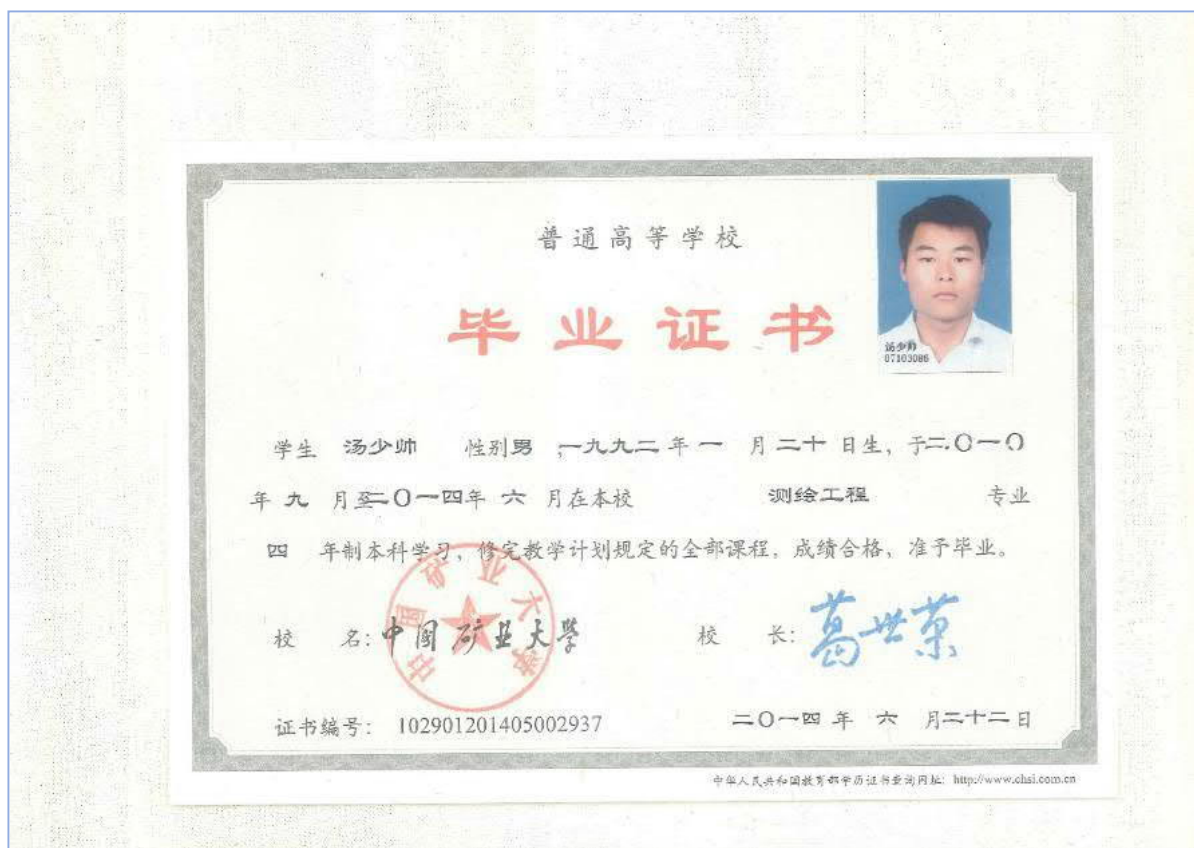 普通高等学校
毕业证书
汤少帅
07103086
学生 汤少帅 性别男 ,一九九二年一 月二十日生, 于二〇一〇
年九 月至二〇一四年 六 月在本校 测绘工程 专业
四 年制本科学习, 修完教学计划规定的全部课程, 成绩合格, 准予毕业。
中国矿业大学
校 名: 中国矿业大学 校 长: 葛世荣
证书编号: 102901201405002937 二〇一四年 六 月二十二日
中华人民共和国教育部学历证书查询网址: http://www.chsi.com.cn